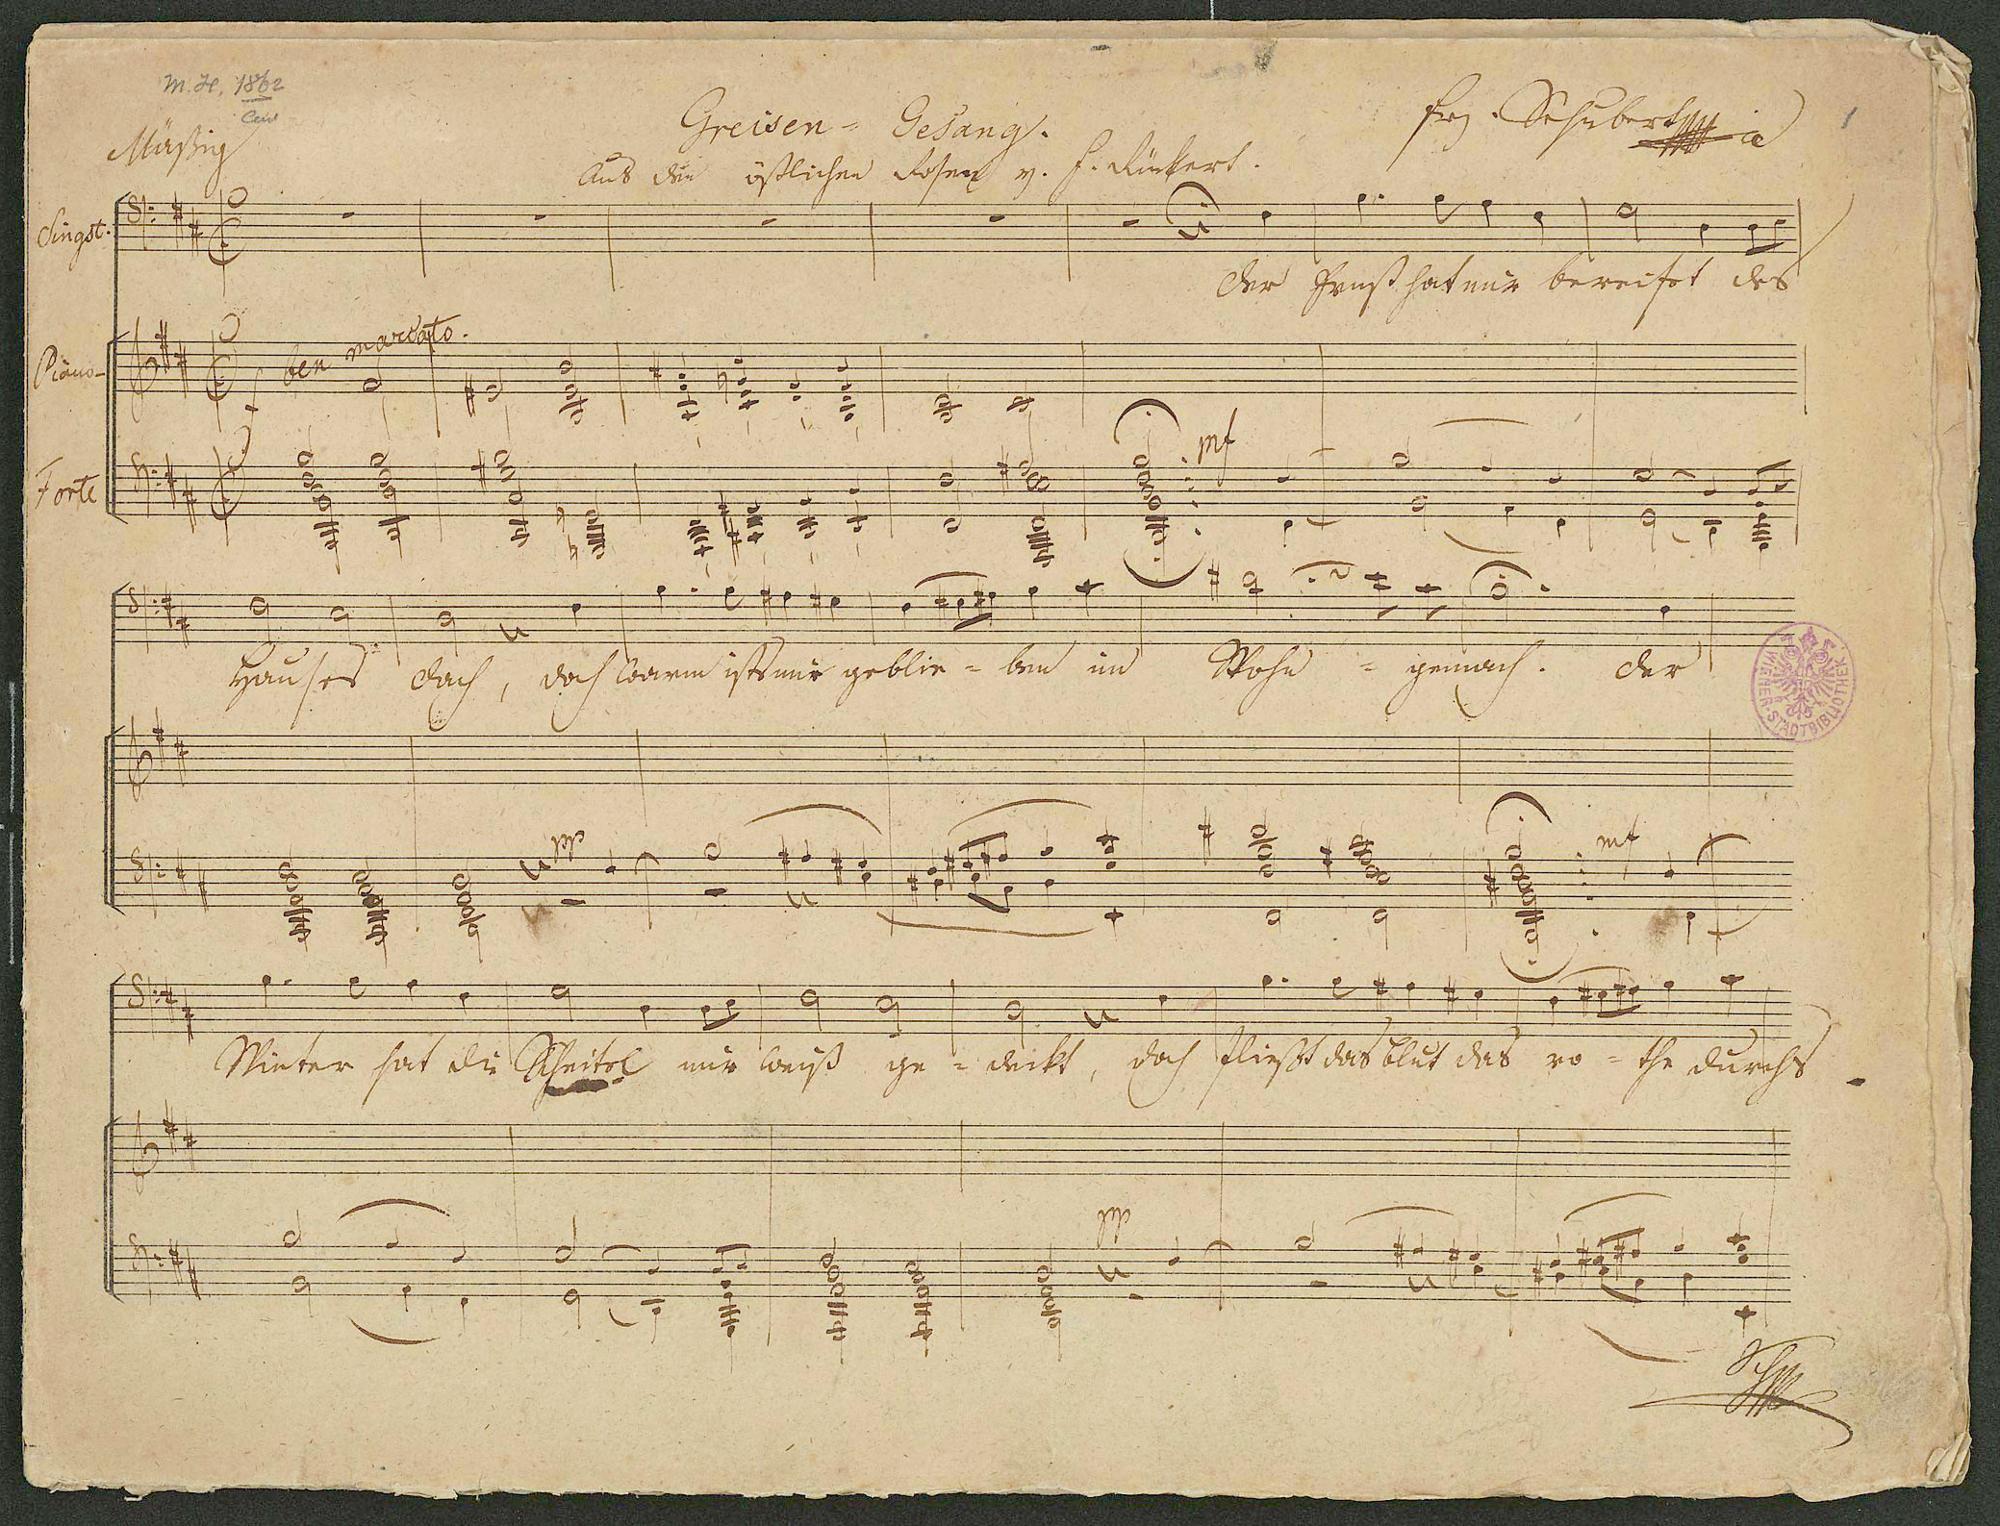 M.H. 1862
Mäßig
Greisen-Gesang.
Frz. Schubert
1
Aus den östlichen Rosen v. F. Rückert.
Singst.
Der Frost hat mir bereifet des
Piano-
ben marcato.
f
Forte
mf
Hauses Dach, doch warm ists mir geblie-ben im Wohn-gemach. Der
pp
mf
WIENER STADTBIBLIOTHEK
Winter hat die Scheitel mir weiß ge-deckt, doch fließt das Blut das ro-the durchs
pp